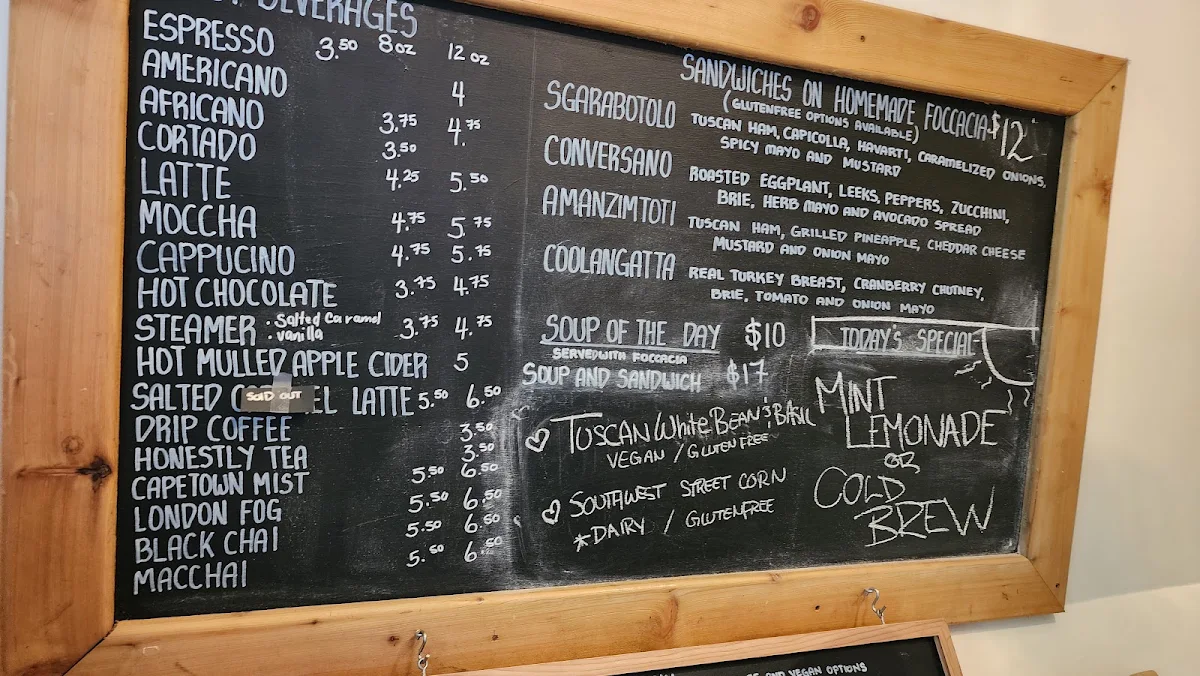 BEVERAGES
8oz 12oz
ESPRESSO 3.50
AMERICANO 4
AFRICANO 3.75 4.75
CORTADO 3.50
LATTE 4.25 5.50
MOCCHA 4.75 5.75
CAPPUCINO 4.75 5.75
HOT CHOCOLATE 3.75 4.75
STEAMER • Salted Caramel 3.75 4.75
• vanilla
HOT MULLED APPLE CIDER 5
SALTED C EL LATTE 5.50 6.50
SOLD OUT
DRIP COFFEE 3.50
HONESTLY TEA 3.50
CAPETOWN MIST 5.50 6.50
LONDON FOG 5.50 6.50
BLACK CHAI 5.50 6.50
MACCHAI 5.50 6.50
SANDWICHES ON HOMEMADE FOCCACIA $12
(GLUTENFREE OPTIONS AVAILABLE)
SGARABOTOLO TUSCAN HAM, CAPICOLLA, HAVARTI, CARAMELIZED ONIONS,
SPICY MAYO AND MUSTARD
CONVERSANO ROASTED EGGPLANT, LEEKS, PEPPERS, ZUCCHINI,
BRIE, HERB MAYO AND AVOCADO SPREAD
AMANZIMTOTI TUSCAN HAM, GRILLED PINEAPPLE, CHEDDAR CHEESE
MUSTARD AND ONION MAYO
COOLANGATTA REAL TURKEY BREAST, CRANBERRY CHUTNEY,
BRIE, TOMATO AND ONION MAYO
SOUP OF THE DAY $10
SERVED WITH FOCCACIA
SOUP AND SANDWICH $17
TUSCAN White BEAN & BASIL
VEGAN / GLUTEN FREE
SOUTHWEST STREET CORN
*DAIRY / GLUTENFREE
TODAY'S SPECIAL
MINT
LEMONADE
OR
COLD
BREW
AND VEGAN OPTIONS